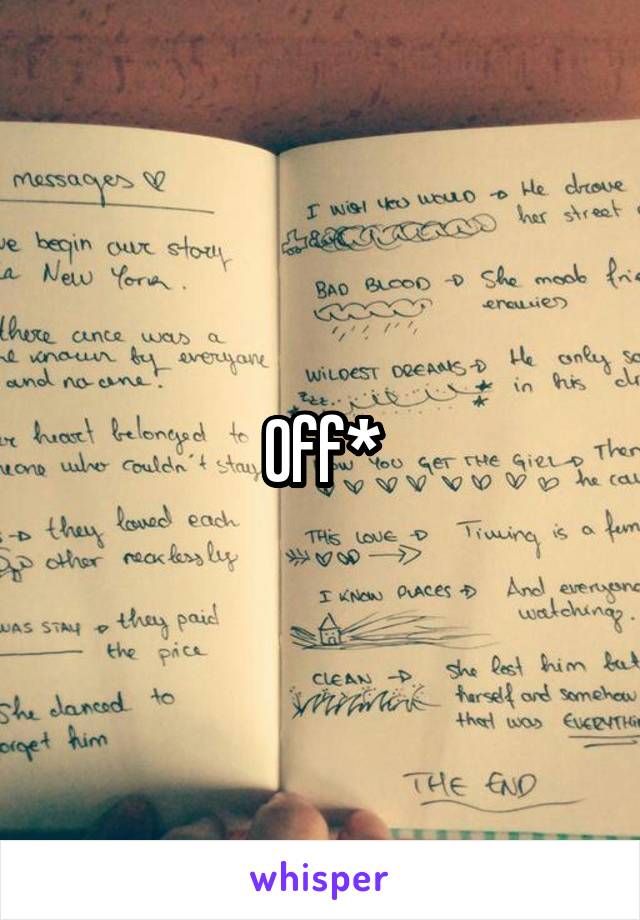 messages
ve begin our story
a New York.
there once was a
e known by everyone
and no one.
r heart belonged to
eone who couldn't stay
they loved each
other recklessly
WAS STAY → they paid
the price
She danced to
orget him
I WISH YOU WOULD → He drove
her street
BAD BLOOD → She made frie
enemies
WILDEST DREAMS → He only sa
in his dr
HOW YOU GET THE GIRL → Then
he cou
THIS LOVE → Timing is a funn
I KNOW PLACES → And everyone
watching.
CLEAN → She lost him but
herself and somehow
that was EVERYTHIN
THE END
Off*
whisper